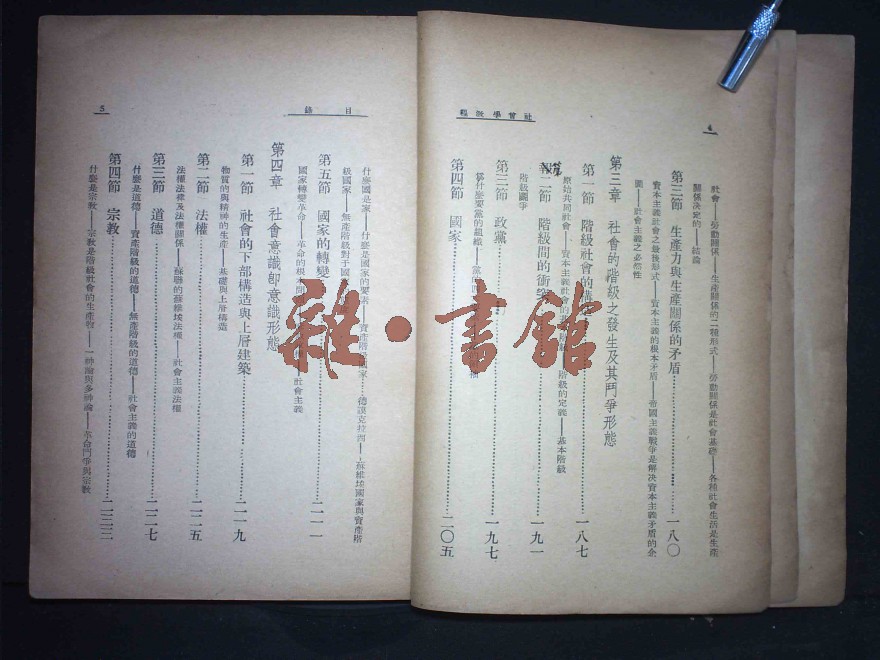 4
社會學教程
社會——勞動關係——生產關係的二種形式——勞動關係是社會基礎——各種社會生活是生產
關係決定的——結論
第三節 生產力與生產關係的矛盾 一八〇
資本主義社會之最後形式——資本主義的根本矛盾——帝國主義戰爭是解決資本主義矛盾的企
圖——社會主義之必然性
第三章 社會的階級之發生及其鬥爭形態
第一節 階級社會的構造 一八七
原始共同社會——資本主義社會的 階級的定義——基本階級
第二節 階級間的衝突 一九一
階級鬭爭
第三節 政黨 一九七
為什麼要黨的組織
第四節 國家 二〇五
目錄
5
什麼國是家——什麼是國家的要素——資產階級國家——德謨克拉西——蘇維埃國家與資產階
級國家——無產階級對于國
第五節 國家的轉變 二一一
國家轉變革命——革命的根本問 社會主義
第四章 社會意識卽意識形態
第一節 社會的下部構造與上層建築 二一九
物質的與精神的生產——基礎與上層構造
第二節 法權 二二五
法權法律及法權關係——蘇聯的蘇維埃法權——社會主義法權
第三節 道德 二二七
什麼是道德——資產階級的道德——無產階級的道德——社會主義的道德
第四節 宗教 二三三
什麼是宗教——宗教是階級社會的生產物——一神論與多神論——革命鬥爭與宗教
雜·書館